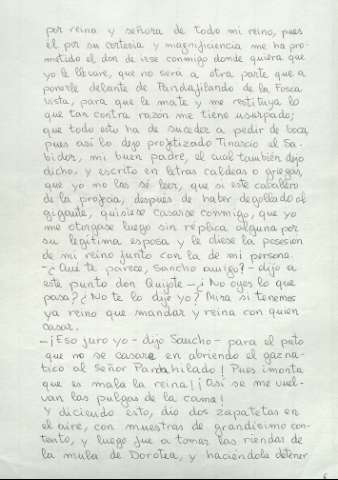 por reina y señora de todo mi reino, pues
él por su cortesía y magnificencia me ha pro-
metido el don de irse conmigo donde quiera que
yo le llevare, que no será a otra parte que a
ponerle delante de Pandafilando de la Fosca
Vista, para que le mate y me restituya lo
que tan contra razon me tiene usurpado;
que todo esto ha de suceder a pedir de boca,
pues así lo dejó profetizado Tinacrio el Sa-
bidor, mi buen padre, el cual también dejó
dicho, y escrito en letras caldeas o griegas,
que yo no las sé leer, que si este caballero
de la profecía, después de haber degollado al
gigante, quisiese casarse conmigo, que yo
me otorgase luego sin réplica alguna por
su legítima esposa y le diese la posesión
de mi reino junto con la de mi persona.
-¿Qué te parece, Sancho amigo? - dijo a
este punto don Quijote - ¿No oyes lo que
pasa? ¿No te lo dije yo? Mira si tenemos
ya reino que mandar y reina con quien
casar.
-¡Eso juro yo - dijo Sancho - para el puto
que no se casare en abriendo el gazna-
tico al Señor Pandahilado! Pues ¡monta
que es mala la reina! ¡Así se me vuel-
van las pulgas de la cama!
Y diciendo esto, dio dos zapatetas en
el aire, con muestras de grandísimo con-
tento, y luego fue a tomar las riendas de
la mula de Dorotea, y haciéndola detener